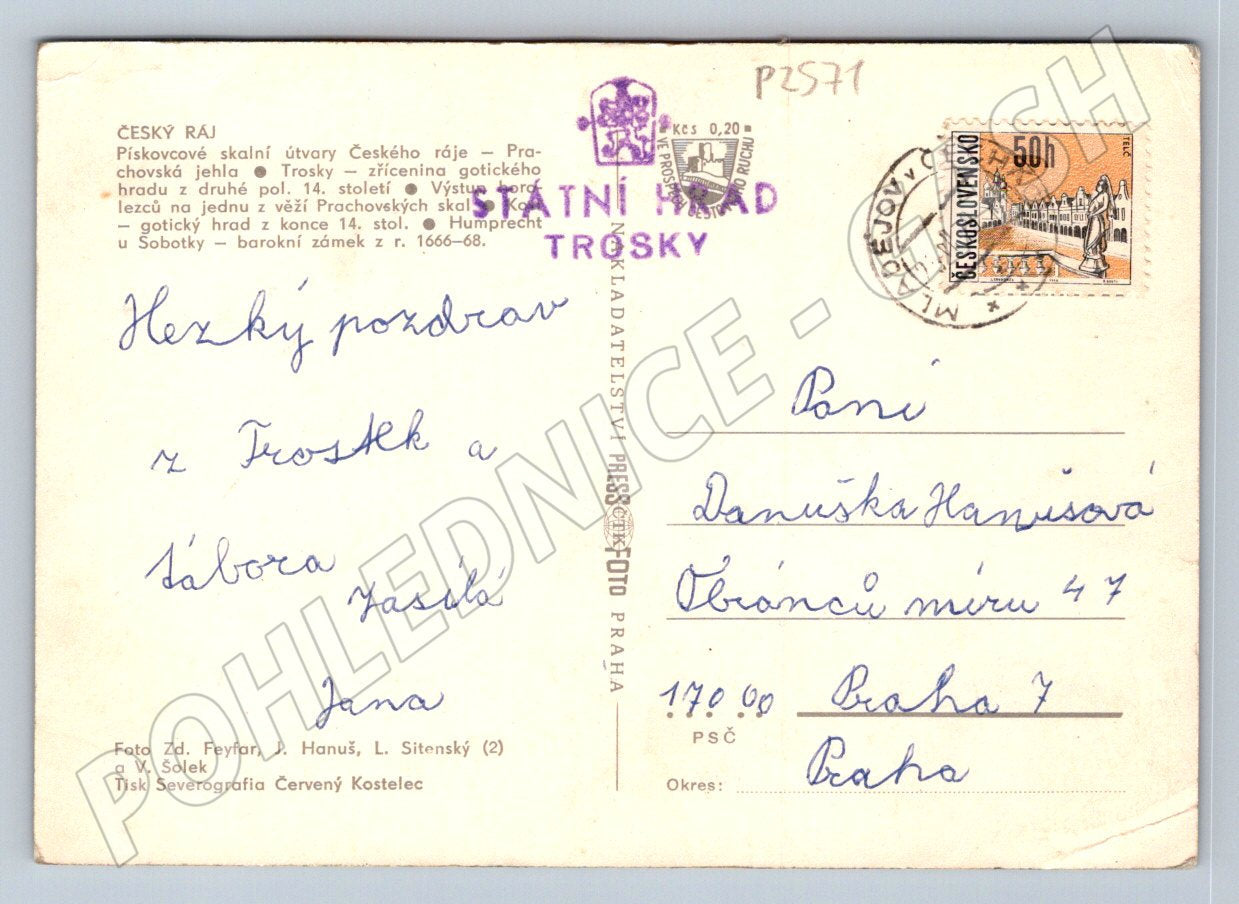 P2571
ČESKÝ RÁJ
Pískovcové skalní útvary Českého ráje – Pra-
chovská jehla ● Trosky – zřícenina gotického
hradu z druhé pol. 14. století ● Výstup horo-
lezců na jednu z věží Prachovských skal ●
– gotický hrad z konce 14. stol. ● Humprecht
u Sobotky – barokní zámek z r. 1666–68.
STÁTNÍ HRAD
TROSKY
Kčs 0,20
VE PROSPĚCH CESTOVNÍHO RUCHU
ČESKOSLOVENSKO
50h
TELČ
MLADĚJOV v ČECHÁCH
Hezký pozdrav
z Trosek a
tábora
Zasílá
Jana
NAKLADATELSTVÍ PRESSFOTO PRAHA
ČTK
Paní
Danuška Hanušová
Obránců míru 47
170 00 Praha 7
PSČ
Praha
Okres:
Foto Zd. Feyfar, J. Hanuš, L. Sitenský (2)
a V. Šolek
Tisk Severografia Červený Kostelec